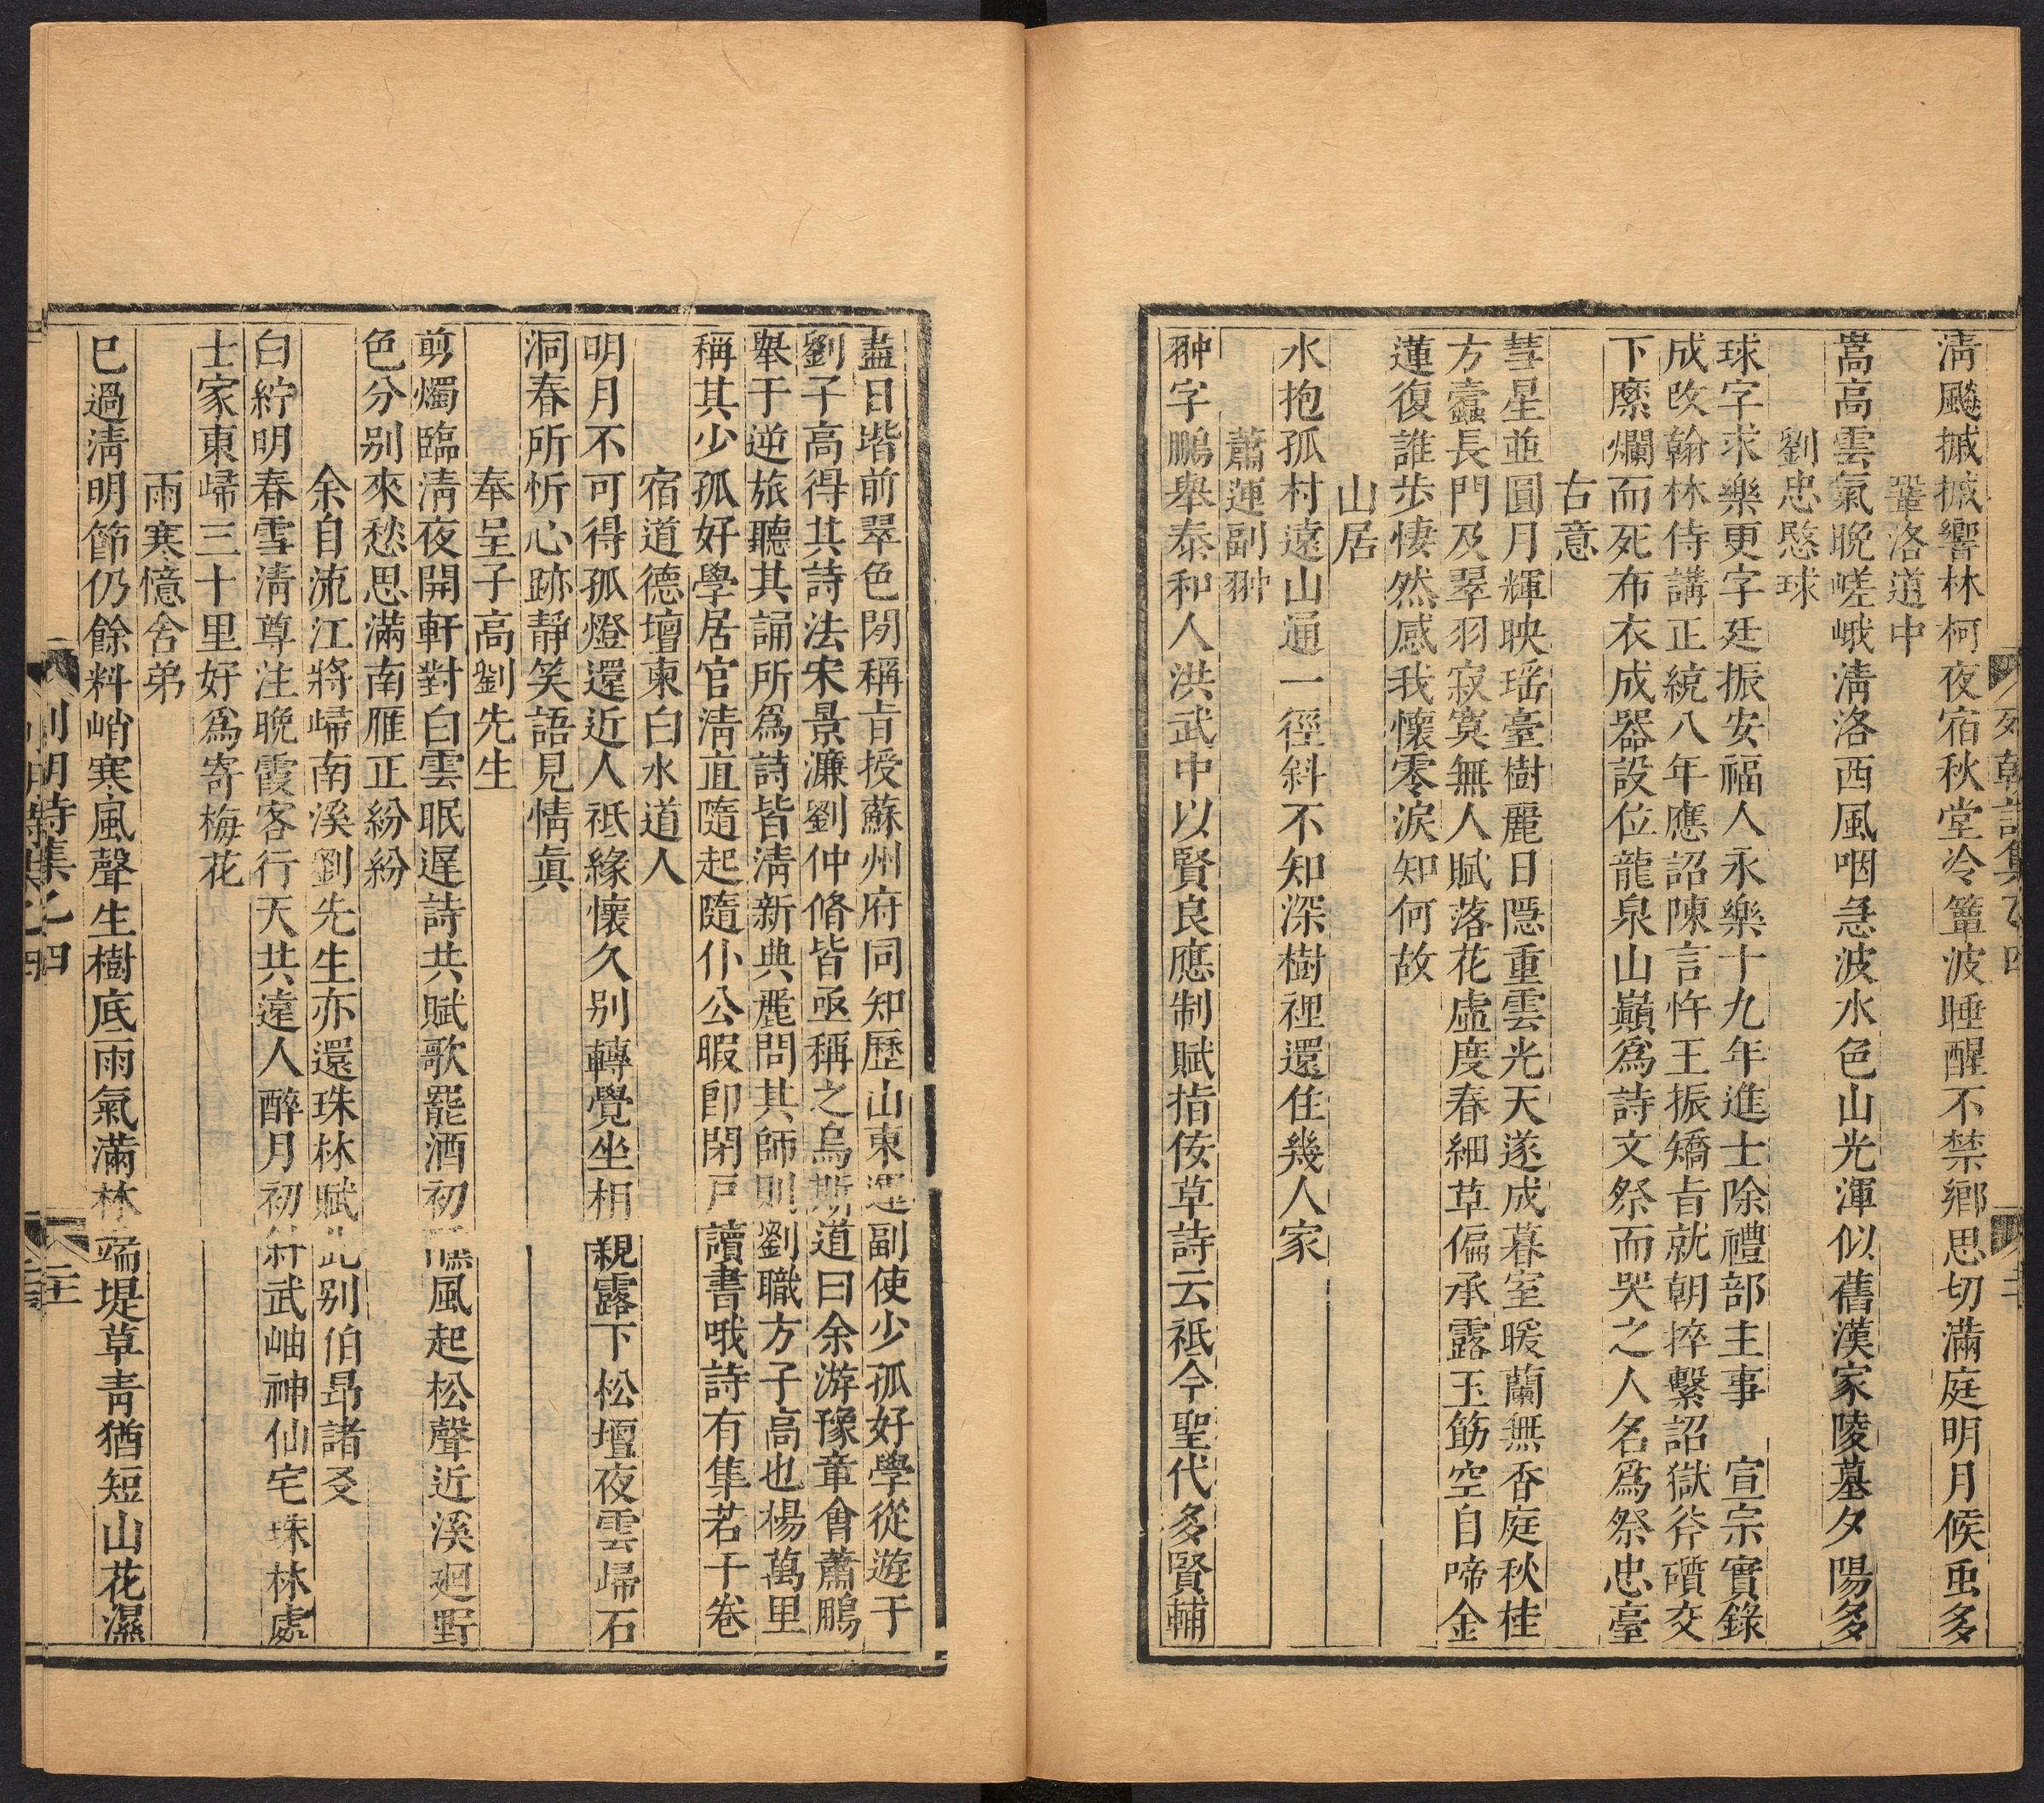 淸飈摵摵響林柯夜宿秋堂冷簟波睡醒不禁鄉思切滿庭明月候虫多
鞏洛道中
嵩高雲氣晩嵯峨淸洛西風咽急波水色山光渾似舊漢家陵墓夕陽多
劉忠愍球
球字求樂更字廷振安福人永樂十九年進士除禮部主事 宣宗實錄
成改翰林侍講正統八年應詔陳言忤王振矯㫖就朝捽繫詔獄斧礩交
下縻爛而死布衣成器設位龍泉山巔爲詩文祭而哭之人名爲祭忠臺
古意
彗星並圓月輝映瑶臺樹麗日隱重雲光天遂成暮室暖蘭無香庭秋桂
方蠹長門及翠羽寂寞無人賦落花虛度春細草偏承露玉筯空自啼金
蓮復誰步悽然感我懷零淚知何故
山居
水抱孤村遠山通一徑斜不知深樹裡還住幾人家
蕭運副翀
翀字鵬舉泰和人洪武中以賢良應制賦指佞草詩云祗今聖代多賢輔
盡日堦前翠色閑稱㫖授蘇州府同知歷山東運副使少孤好學從遊于
劉子高得其詩法宋景濂劉仲脩皆亟稱之烏斯道曰余游豫章會蕭鵬
舉于逆旅聽其誦所爲詩皆淸新典麗問其師則劉職方子高也楊萬里
稱其少孤好學居官淸直隨起隨仆公暇卽閉戸讀書哦詩有集若干卷
宿道德壇柬白水道人
明月不可得孤燈還近人祗緣懷久别轉覺坐相親露下松壇夜雲歸石
洞春所忻心跡靜笑語見情眞
奉呈子高劉先生
剪燭臨淸夜開軒對白雲眠遲詩共賦歌罷酒初醺風起松聲近溪廻野
色分别來愁思滿南雁正紛紛
余自流江將歸南溪劉先生亦還珠林賦此别伯昂諸友
白紵明春雪淸尊注晩霞客行天共遠人醉月初斜武岫神仙宅珠林處
士家東歸三十里好爲寄梅花
雨寒憶舍弟
已過淸明節仍餘料峭寒風聲生樹底雨氣滿林端堤草靑猶短山花濕
列朝詩集乙四